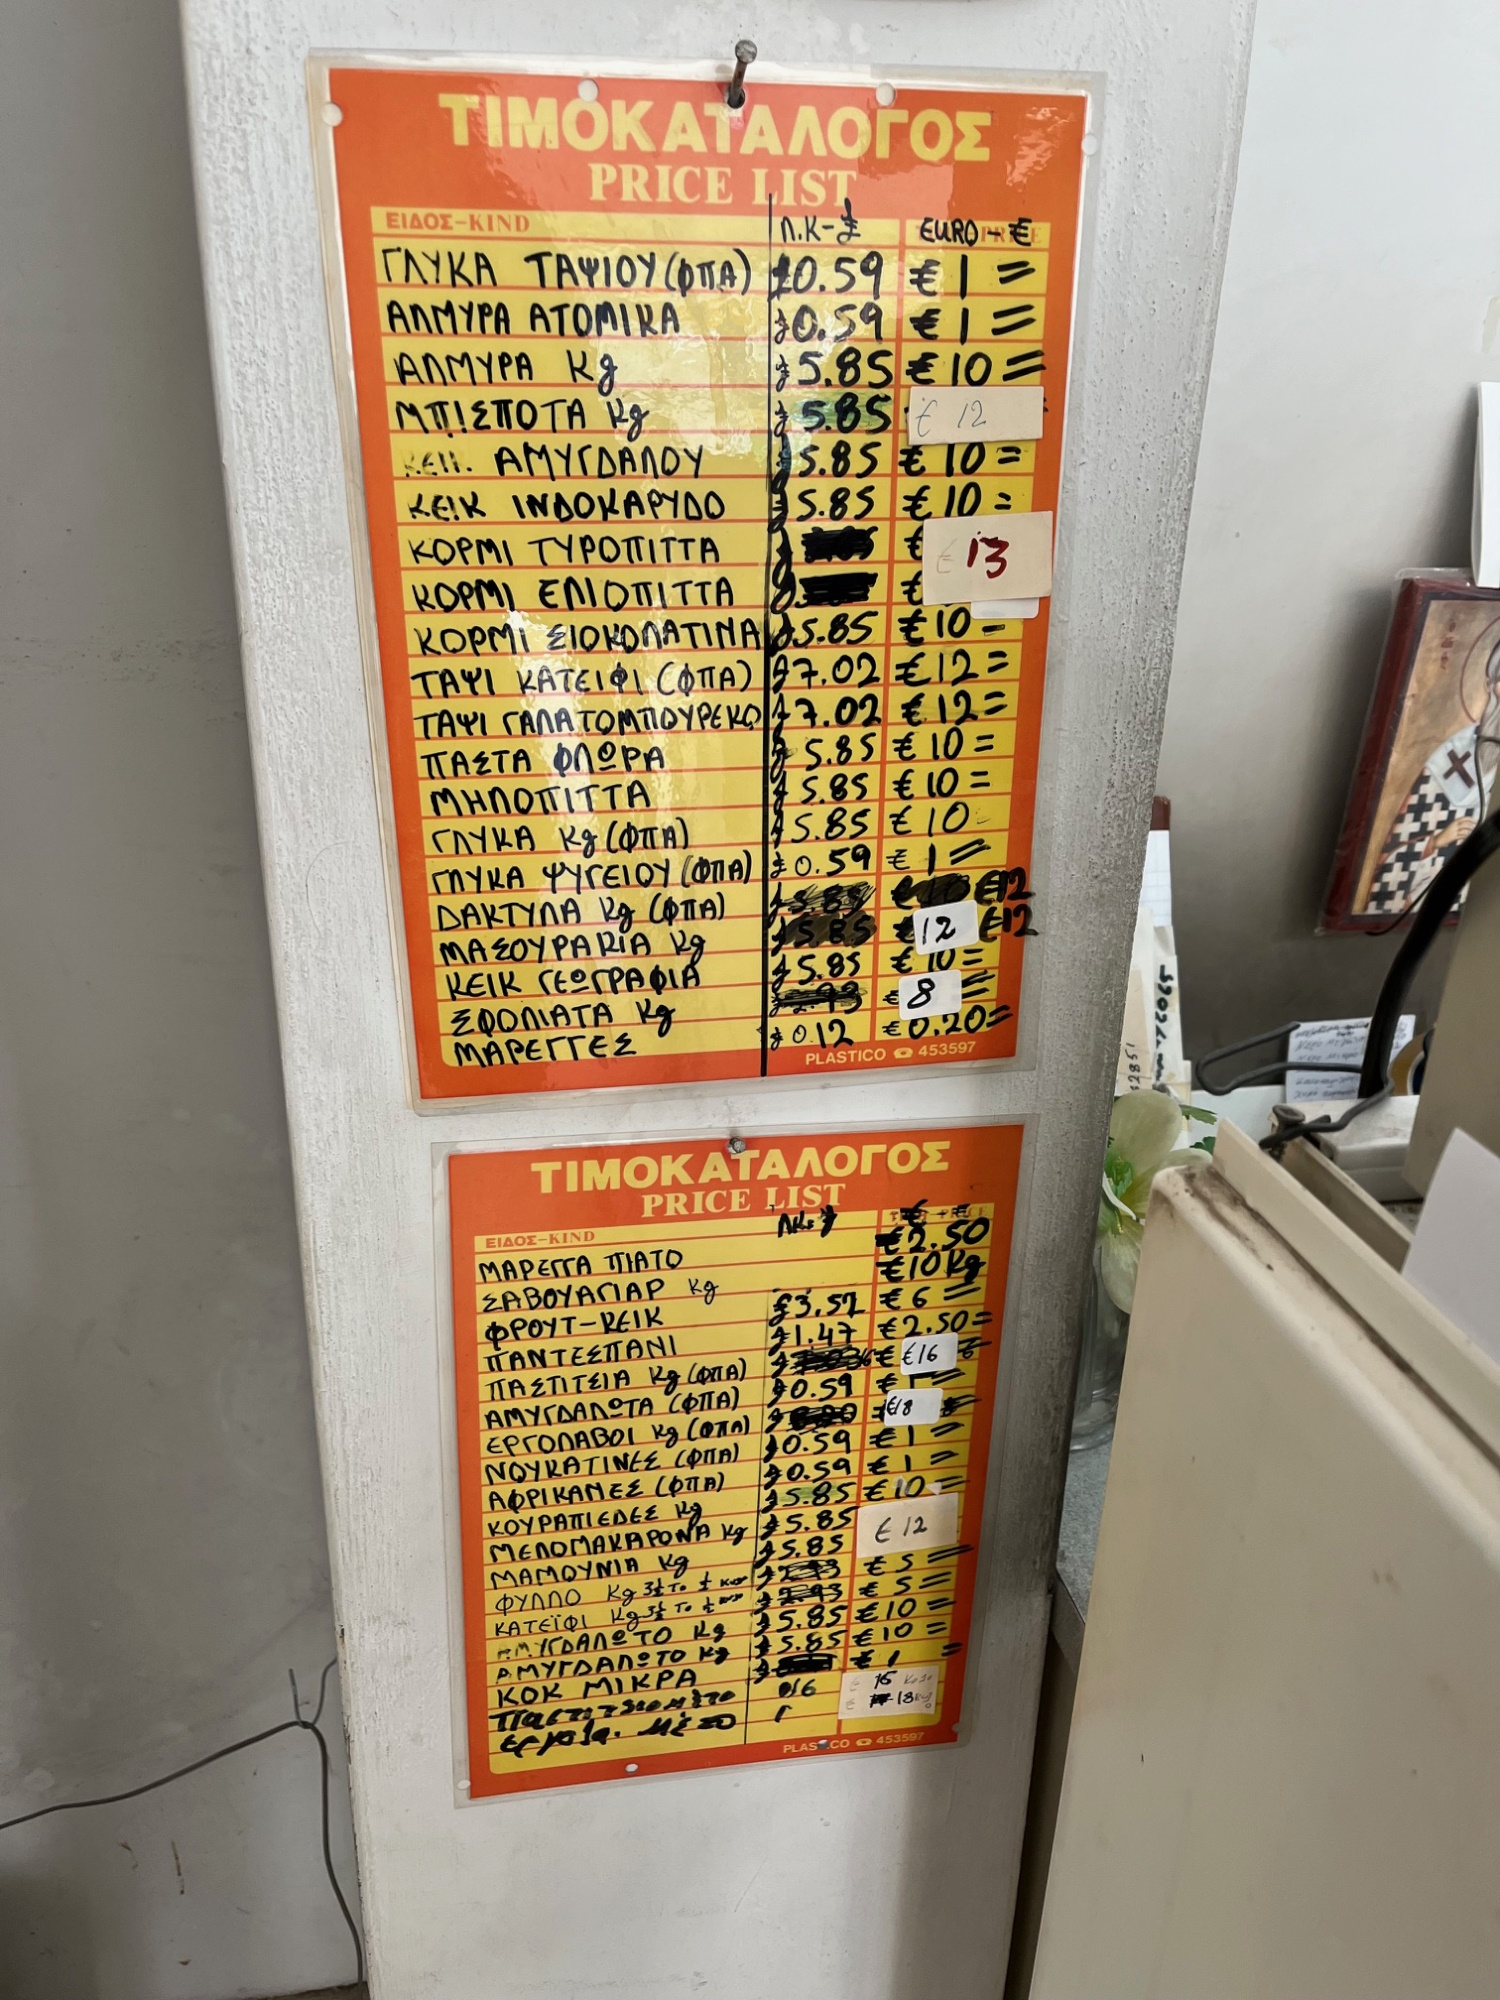 ΤΙΜΟΚΑΤΑΛΟΓΟΣ
PRICE LIST
ΕΙΔΟΣ-KIND Λ.Κ-£ EURO-€
ΓΛΥΚΑ ΤΑΨΙΟΥ (ΦΠΑ) £0.59 €1=
ΑΛΜΥΡΑ ΑΤΟΜΙΚΑ £0.59 €1=
ΑΛΜΥΡΑ Kg £5.85 €10=
ΜΠΙΣΠΟΤΑ Kg £5.85 €12
ΑΜΥΓΔΑΛΟΥ £5.85 €10=
ΚΕΙΚ ΙΝΔΟΚΑΡΥΔΟ £5.85 €10=
ΚΟΡΜΙ ΤΥΡΟΠΙΤΤΑ £ € €13
ΚΟΡΜΙ ΕΛΙΟΠΙΤΤΑ €
ΚΟΡΜΙ ΣΙΟΚΟΛΑΤΙΝΑ £5.85 €10=
ΤΑΨΙ ΚΑΤΕΙΦΙ (ΦΠΑ) £7.02 €12=
ΤΑΨΙ ΓΑΛΑΤΟΜΠΟΥΡΕΚΟ £7.02 €12=
ΠΑΣΤΑ ΦΛΩΡΑ £5.85 €10=
ΜΗΛΟΠΙΤΤΑ £5.85 €10=
ΓΛΥΚΑ Kg (ΦΠΑ) £5.85 €10
ΓΛΥΚΑ ΨΥΓΕΙΟΥ (ΦΠΑ) £0.59 €1=
ΔΑΚΤΥΛΑ Kg (ΦΠΑ) £5.85 €10 €12
ΜΑΣΟΥΡΑΚΙΑ Kg £5.85 €12 €12
ΚΕΙΚ ΓΕΩΓΡΑΦΙΑ £5.85 €10=
ΣΦΟΛΙΑΤΑ Kg €8
ΜΑΡΕΓΓΕΣ £0.12 €0.20=
PLASTICO ☎ 453597
ΤΙΜΟΚΑΤΑΛΟΓΟΣ
PRICE LIST
ΕΙΔΟΣ-KIND ΛΚ-£
ΜΑΡΕΓΓΑ ΠΙΑΤΟ €2.50
ΣΑΒΟΥΑΓΙΑΡ Kg €10 Kg
ΦΡΟΥΤ-ΚΕΙΚ £3.51 €6=
ΠΑΝΤΕΣΠΑΝΙ £1.47 €2.50=
ΠΑΣΤΙΤΣΙΑ Kg (ΦΠΑ) €16
ΑΜΥΓΔΑΛΩΤΑ (ΦΠΑ) £0.59 €1=
ΕΡΓΟΛΑΒΟΙ Kg (ΦΠΑ) €18
ΝΟΥΚΑΤΙΝΕΣ (ΦΠΑ) £0.59 €1=
ΑΦΡΙΚΑΝΕΣ (ΦΠΑ) £0.59 €1=
ΚΟΥΡΑΠΙΕΔΕΣ Kg £5.85 €10=
ΜΕΛΟΜΑΚΑΡΟΝΑ Kg £5.85 €12
ΜΑΜΟΥΝΙΑ Kg £5.85
ΦΥΛΛΟ Kg £2.93 €5=
ΚΑΤΕΪΦΙ Kg £2.93 €5=
ΑΜΥΓΔΑΛΩΤΟ Kg £5.85 €10=
ΑΜΥΓΔΑΛΩΤΟ Kg £5.85 €10=
ΚΟΚ ΜΙΚΡΑ €1=
PLASTICO ☎ 453597